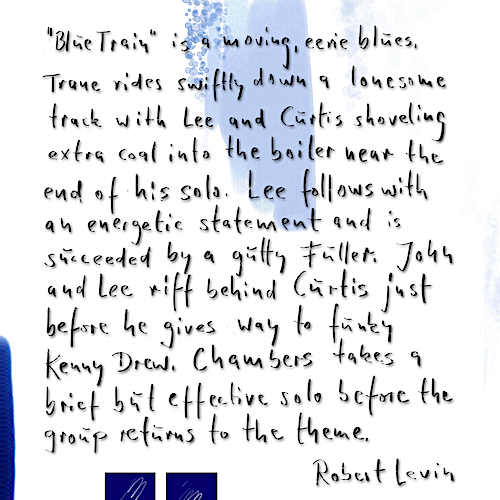 "Blue Train" is a moving, eerie blues.
Trane rides swiftly down a lonesome
track with Lee and Curtis shoveling
extra coal into the boiler near the
end of his solo. Lee follows with
an energetic statement and is
succeeded by a gutty Fuller. John
and Lee riff behind Curtis just
before he gives way to funky
Kenny Drew. Chambers takes a
brief but effective solo before the
group returns to the theme.
Robert Levin